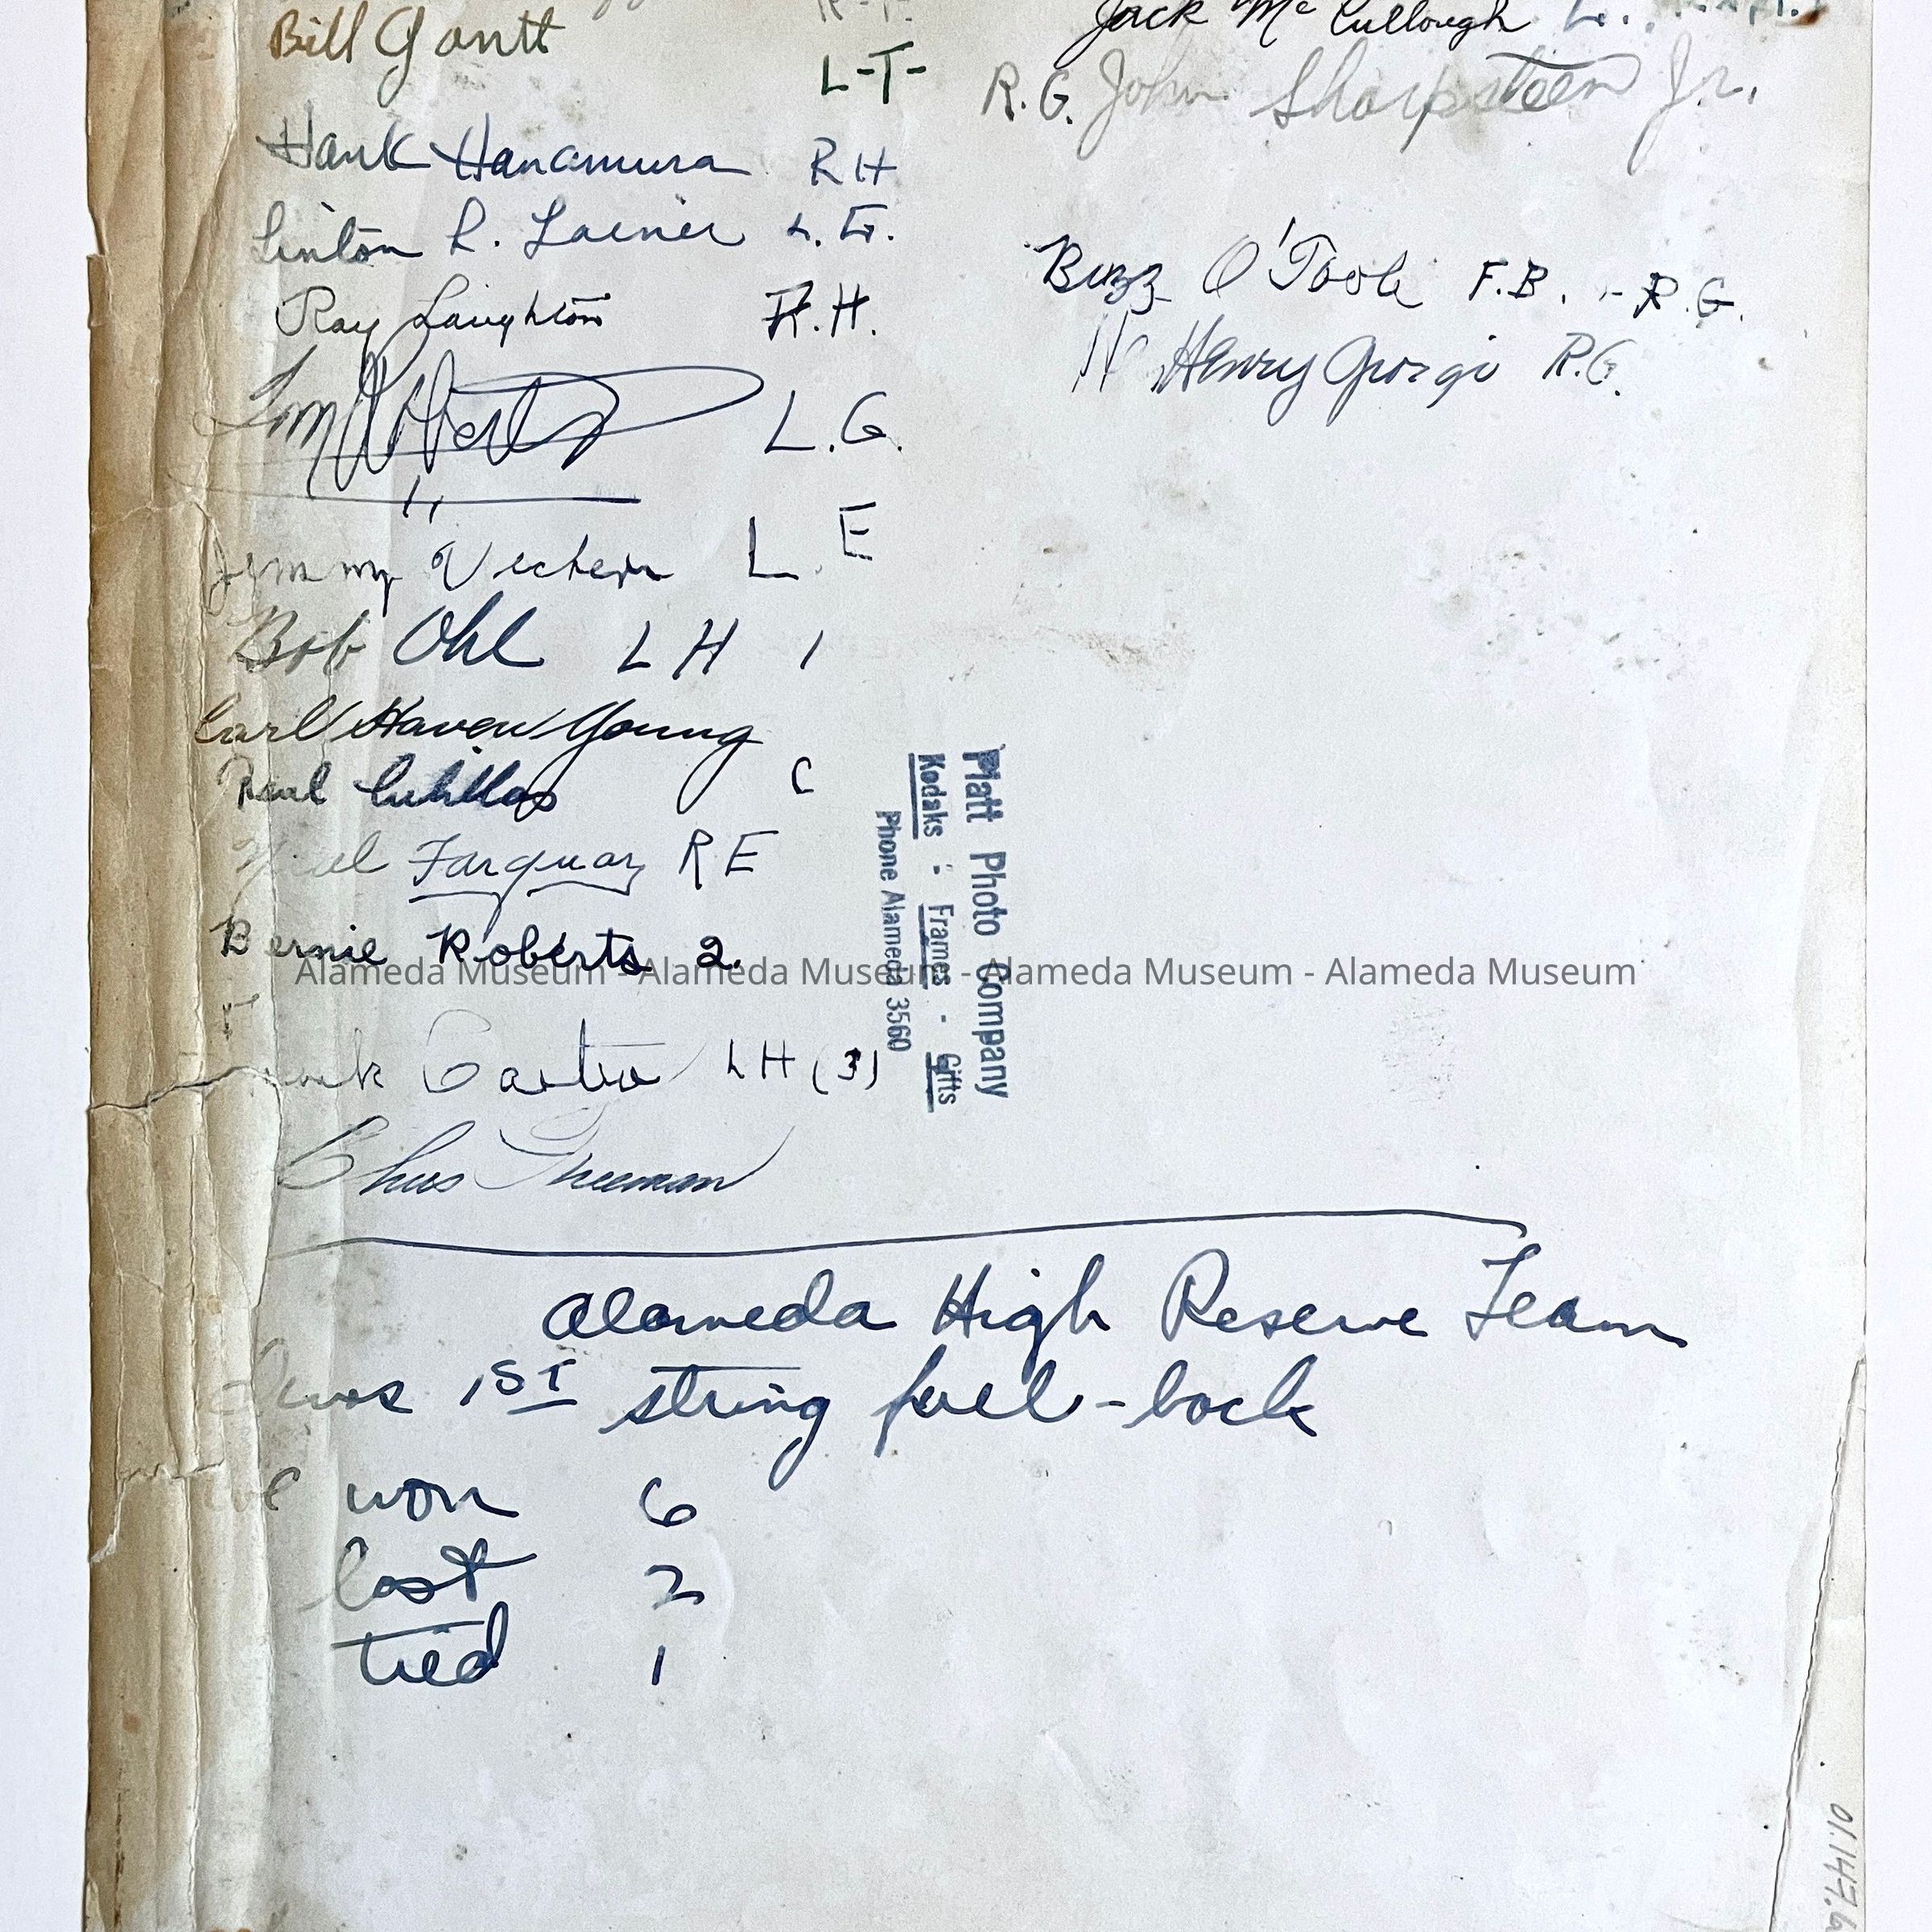 Bill Gantt L-T-
Jack McCullough
R.G. John Sharpsteen Jr.
Hank Hanamura RH
Linton R. Lacner L.G.
Ray Laughton R.H.
Buzz O'Toole F.B. - R.G.
Henry Giorgi R.G.
Tom Roberts L.G.
Jimmy L.E
Bob Ohl LH 1
Carl Haven Young
Paul C
Farquar RE
Bernie Roberts 2.
Castro LH (3)
Chas Freeman
Platt Photo Company
Kodaks - Frames - Gifts
Phone Alameda 3560
Alameda Museum - Alameda Museum - Alameda Museum - Alameda Museum
Alameda High Reserve Team
I was 1ST string full-back
we won 6
lost 2
tied 1